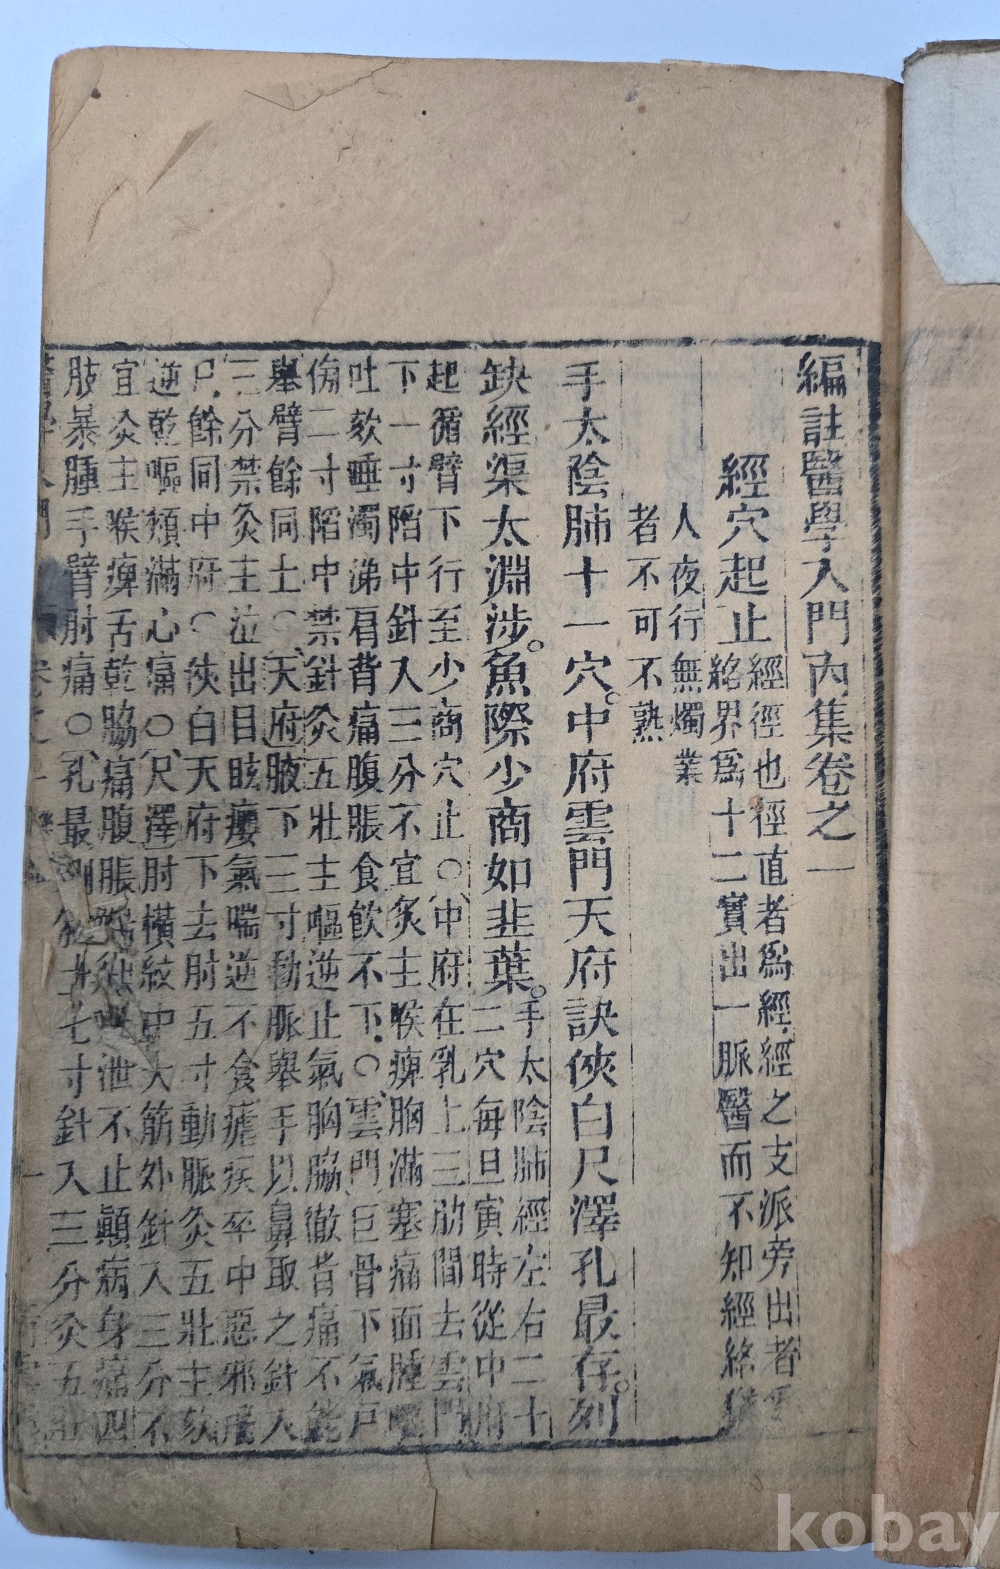 編註醫學入門內集卷之一
經穴起止
經徑也徑直者爲經經之支派旁出者
絡界爲十二實出一脈醫而不知經絡猶
人夜行無燭業
者不可不熟
手太陰肺十一穴。中府雲門天府訣俠白尺澤孔最存。列
缺經渠太淵涉。魚際少商如韭葉。
手太陰肺經左右二十
二穴每旦寅時從中府
起循臂下行至少商穴止○中府在乳上三肋間去雲門
下一寸陷中針入三分不宜灸主喉痺胸滿塞痛面腫嘔
吐欬唾濁涕肩背痛腹脹食飲不下○雲門巨骨下氣戶
傍二寸陷中禁針灸五壯主嘔逆上氣胸脇徹背痛不能
舉臂餘同上○天府腋下三寸動脈舉手以鼻取之針入
三分禁灸主泣出目眩癭氣喘逆不食瘧疾卒中惡邪飛
尸餘同中府○俠白天府下去肘五寸動脈灸五壯主欬
逆乾嘔煩滿心痛○尺澤肘橫紋中大筋外針入三分不
宜灸主喉痺舌乾脇痛腹脹喘泄不止顛病身痛四
肢暴腫手臂肘痛○孔最側上七寸針入三分灸五壯
卷之一
kobay